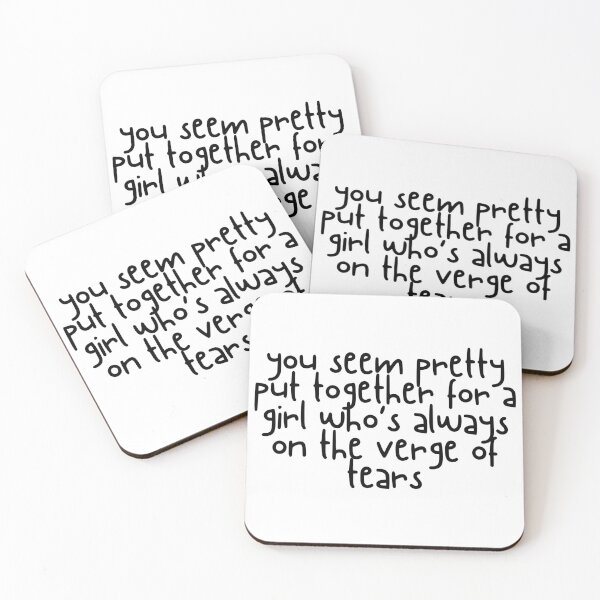 you seem pretty
put together for
girl who's alwa
verge
you seem pretty
put together for a
girl who's always
on the verge of
tears
you seem pretty
put together for a
girl who's always
on the verge of
tears
you seem pretty
put together for a
girl who's always
on the verge of
tears